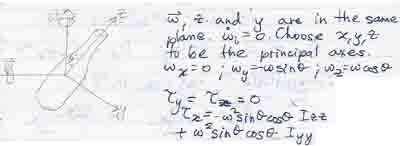 z
y
ω⃗, z. and y are in the same
plane. ω̇ᵢ = 0. Choose x, y, z
to be the principal axes.
ωx = 0 ; ωy = -ω sinθ ; ωz = ω cosθ
τy = τz = 0
τx = -ω² sinθ cosθ Izz
+ ω² sinθ cosθ Iyy